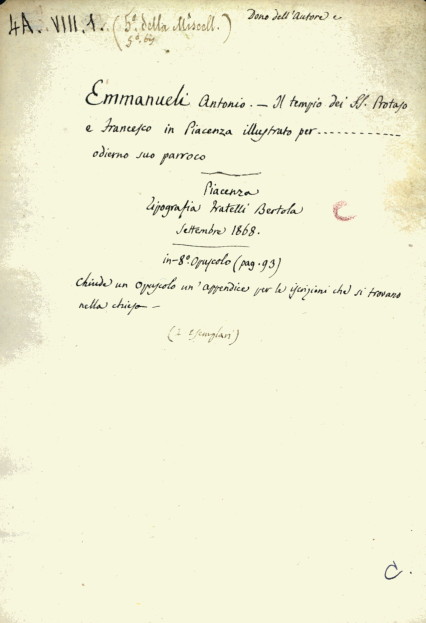 4A. VIII. 1. (5ª. della Miscell.)
5ª. bis
Dono dell'Autore e
Emmanueli Antonio. — Il tempio dei SS. Protaso
e Francesco in Piacenza illustrato per ------------
odierno suo parroco
Piacenza
Tipografia Fratelli Bertola
Settembre 1868.
in-8º. Opuscolo (pag. 93)
Chiude un opuscolo un'appendice per le iscrizioni che si trovano
nella chiesa —
(2 esemplari)
C
C.